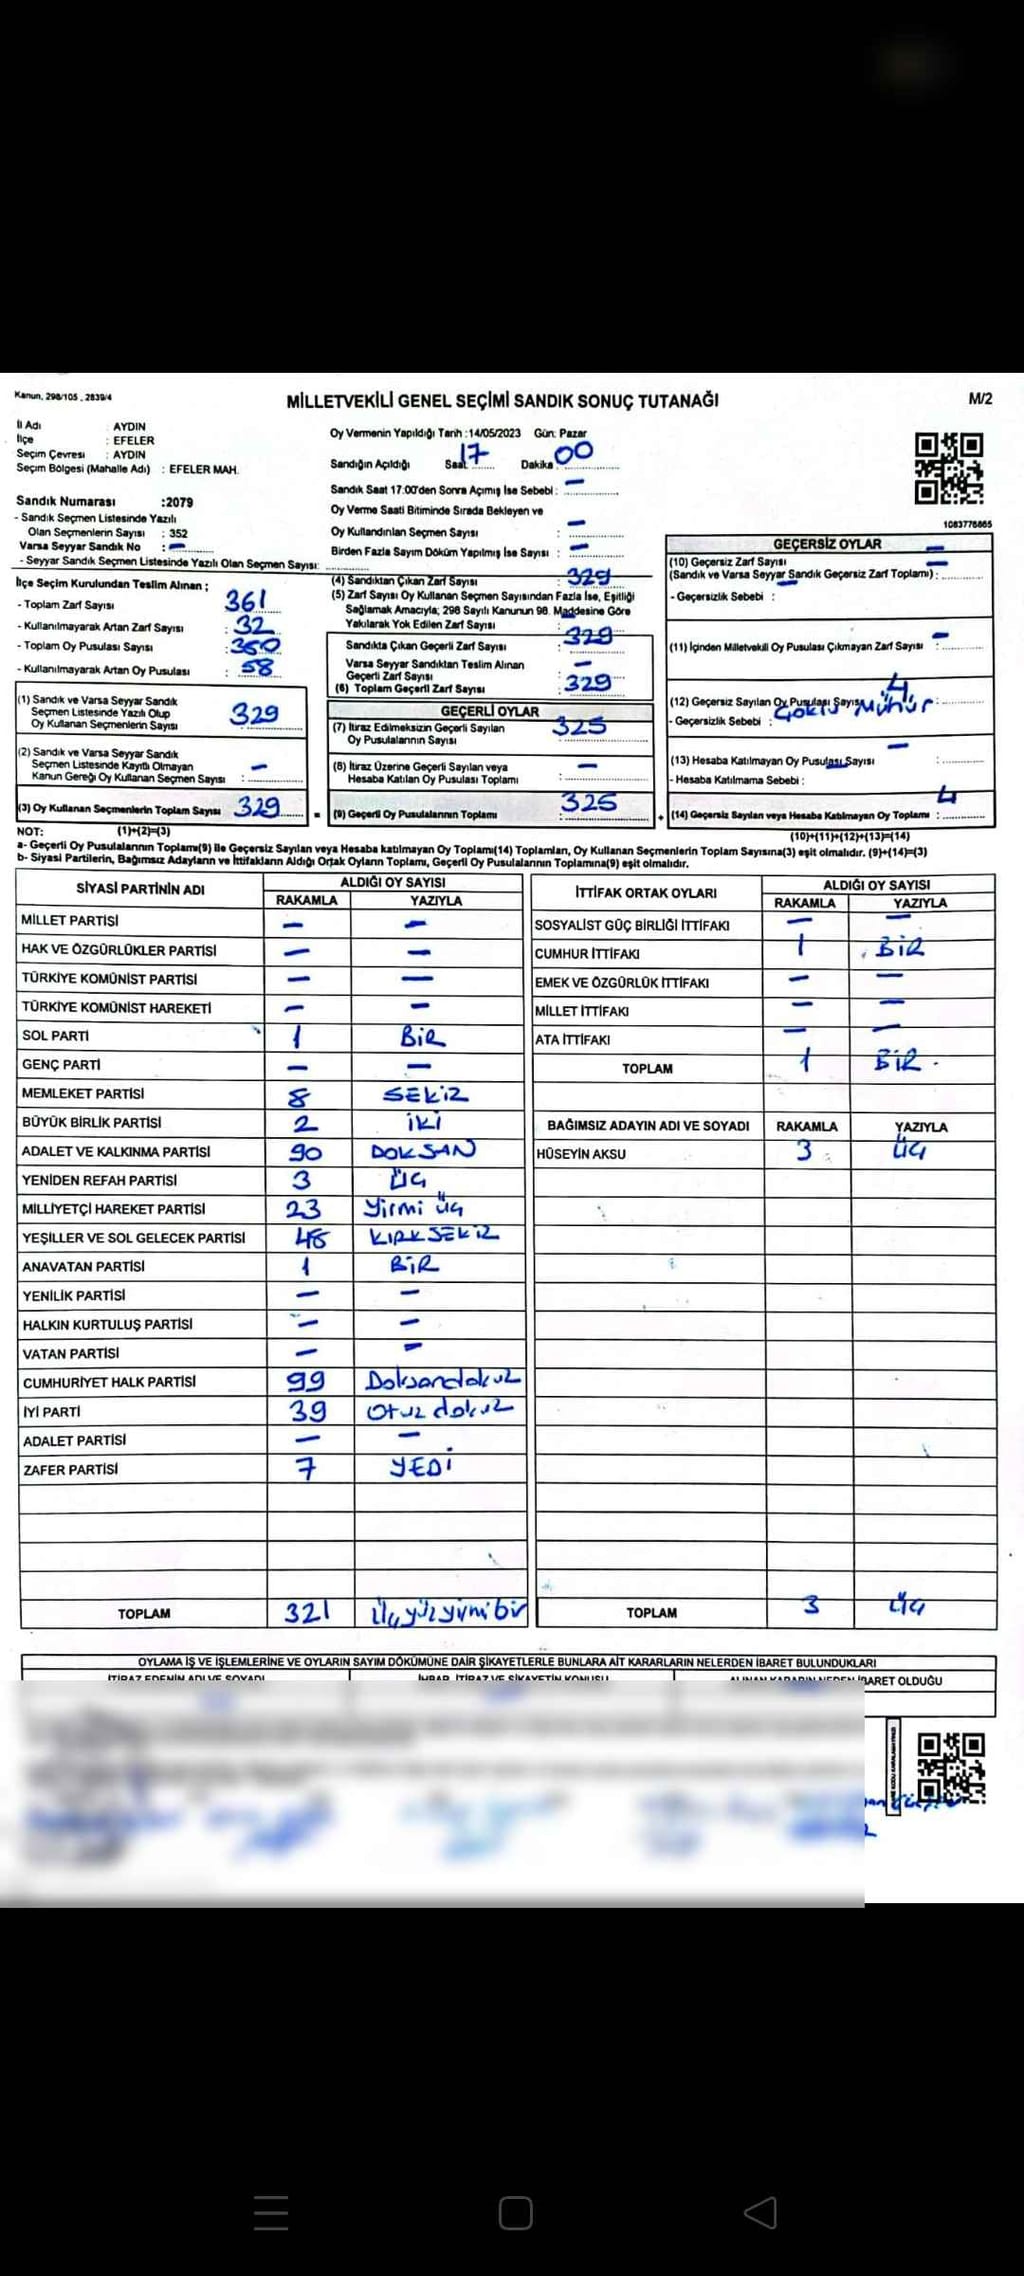 Kanun, 298/105 , 2839/4
MİLLETVEKİLİ GENEL SEÇİMİ SANDIK SONUÇ TUTANAĞI
M/2
İl Adı : AYDIN
İlçe : EFELER
Seçim Çevresi : AYDIN
Seçim Bölgesi (Mahalle Adı) : EFELER MAH.
Oy Vermenin Yapıldığı Tarih :14/05/2023 Gün: Pazar
Sandığın Açıldığı Saat 17 Dakika 00
Sandık Saat 17:00'den Sonra Açımış İse Sebebi : –
Oy Verme Saati Bitiminde Sırada Bekleyen ve
Oy Kullandırılan Seçmen Sayısı : –
Birden Fazla Sayım Döküm Yapılmış İse Sayısı : –
1083776665
Sandık Numarası :2079
- Sandık Seçmen Listesinde Yazılı
Olan Seçmenlerin Sayısı : 352
Varsa Seyyar Sandık No : –
- Seyyar Sandık Seçmen Listesinde Yazılı Olan Seçmen Sayısı:
İlçe Seçim Kurulundan Teslim Alınan ;
- Toplam Zarf Sayısı : 361
- Kullanılmayarak Artan Zarf Sayısı : 32
- Toplam Oy Pusulası Sayısı : 350
- Kullanılmayarak Artan Oy Pusulası : 58
(1) Sandık ve Varsa Seyyar Sandık
Seçmen Listesinde Yazılı Olup
Oy Kullanan Seçmenlerin Sayısı 329
(2) Sandık ve Varsa Seyyar Sandık
Seçmen Listesinde Kayıtlı Olmayan
Kanun Gereği Oy Kullanan Seçmen Sayısı : –
(3) Oy Kullanan Seçmenlerin Toplam Sayısı 329
(4) Sandıktan Çıkan Zarf Sayısı : 329
(5) Zarf Sayısı Oy Kullanan Seçmen Sayısından Fazla İse, Eşitliği
Sağlamak Amacıyla; 298 Sayılı Kanunun 98. Maddesine Göre
Yakılarak Yok Edilen Zarf Sayısı : –
Sandıkta Çıkan Geçerli Zarf Sayısı : 329
Varsa Seyyar Sandıktan Teslim Alınan
Geçerli Zarf Sayısı : –
(6) Toplam Geçerli Zarf Sayısı : 329
GEÇERLİ OYLAR
(7) İtiraz Edilmeksizin Geçerli Sayılan
Oy Pusulalarının Sayısı : 325
(8) İtiraz Üzerine Geçerli Sayılan veya
Hesaba Katılan Oy Pusulası Toplamı : –
= (9) Geçerli Oy Pusulalarının Toplamı : 325
GEÇERSİZ OYLAR
(10) Geçersiz Zarf Sayısı –
(Sandık ve Varsa Seyyar Sandık Geçersiz Zarf Toplamı) : –
- Geçersizlik Sebebi : –
(11) İçinden Milletvekili Oy Pusulası Çıkmayan Zarf Sayısı : –
(12) Geçersiz Sayılan Oy Pusulası Sayısı 4
- Geçersizlik Sebebi : ÇOKLU MÜHÜR
(13) Hesaba Katılmayan Oy Pusulası Sayısı : –
- Hesaba Katılmama Sebebi : –
+ (14) Geçersiz Sayılan veya Hesaba Katılmayan Oy Toplamı : 4
NOT: (1)+(2)=(3) (10)+(11)+(12)+(13)=(14)
a- Geçerli Oy Pusulalarının Toplamı(9) ile Geçersiz Sayılan veya Hesaba katılmayan Oy Toplamı(14) Toplamları, Oy Kullanan Seçmenlerin Toplam Sayısına(3) eşit olmalıdır. (9)+(14)=(3)
b- Siyasi Partilerin, Bağımsız Adayların ve İttifakların Aldığı Ortak Oyların Toplamı, Geçerli Oy Pusulalarının Toplamına(9) eşit olmalıdır.
SİYASİ PARTİNİN ADI ALDIĞI OY SAYISI
RAKAMLA YAZIYLA
MİLLET PARTİSİ – –
HAK VE ÖZGÜRLÜKLER PARTİSİ – –
TÜRKİYE KOMÜNİST PARTİSİ – –
TÜRKİYE KOMÜNİST HAREKETİ – –
SOL PARTİ 1 BİR
GENÇ PARTİ – –
MEMLEKET PARTİSİ 8 SEKİZ
BÜYÜK BİRLİK PARTİSİ 2 İKİ
ADALET VE KALKINMA PARTİSİ 90 DOKSAN
YENİDEN REFAH PARTİSİ 3 ÜÇ
MİLLİYETÇİ HAREKET PARTİSİ 23 Yirmi üç
YEŞİLLER VE SOL GELECEK PARTİSİ 48 KIRKSEKİZ
ANAVATAN PARTİSİ 1 BİR
YENİLİK PARTİSİ – –
HALKIN KURTULUŞ PARTİSİ – –
VATAN PARTİSİ – –
CUMHURİYET HALK PARTİSİ 99 Doksandokuz
İYİ PARTİ 39 Otuz dokuz
ADALET PARTİSİ – –
ZAFER PARTİSİ 7 YEDİ
TOPLAM 321 Üçyüzyirmibir
İTTİFAK ORTAK OYLARI ALDIĞI OY SAYISI
RAKAMLA YAZIYLA
SOSYALİST GÜÇ BİRLİĞİ İTTİFAKI – –
CUMHUR İTTİFAKI 1 BİR
EMEK VE ÖZGÜRLÜK İTTİFAKI – –
MİLLET İTTİFAKI – –
ATA İTTİFAKI – –
TOPLAM 1 BİR
BAĞIMSIZ ADAYIN ADI VE SOYADI RAKAMLA YAZIYLA
HÜSEYİN AKSU 3 ÜÇ
TOPLAM 3 ÜÇ
OYLAMA İŞ VE İŞLEMLERİNE VE OYLARIN SAYIM DÖKÜMÜNE DAİR ŞİKAYETLERLE BUNLARA AİT KARARLARIN NELERDEN İBARET BULUNDUKLARI
İTİRAZ EDENİN ADI VE SOYADI İHBAR, İTİRAZ VE ŞİKAYETİN KONUSU ALINAN KARARIN NEDEN İBARET OLDUĞU